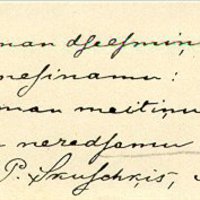 man dſeeſmiņ
neſinamu:
man meitiņu
neredſamu
P. Skuſchķis,